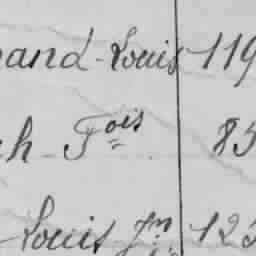 mand Louis 119
ch Fois 85
Louis Jn 123